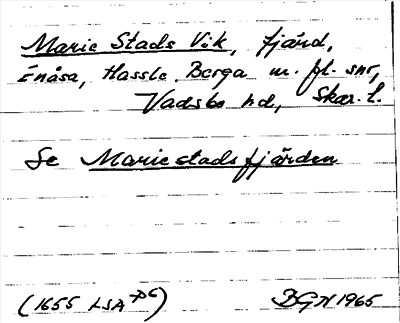 Marie Stads Vik, fjärd,
Enåsa, Hassle, Berga m. fl. snr,
Vadsbo hd, Skar. l.
Se Mariestadsfjärden
(1655 LSA P6) BGN 1965